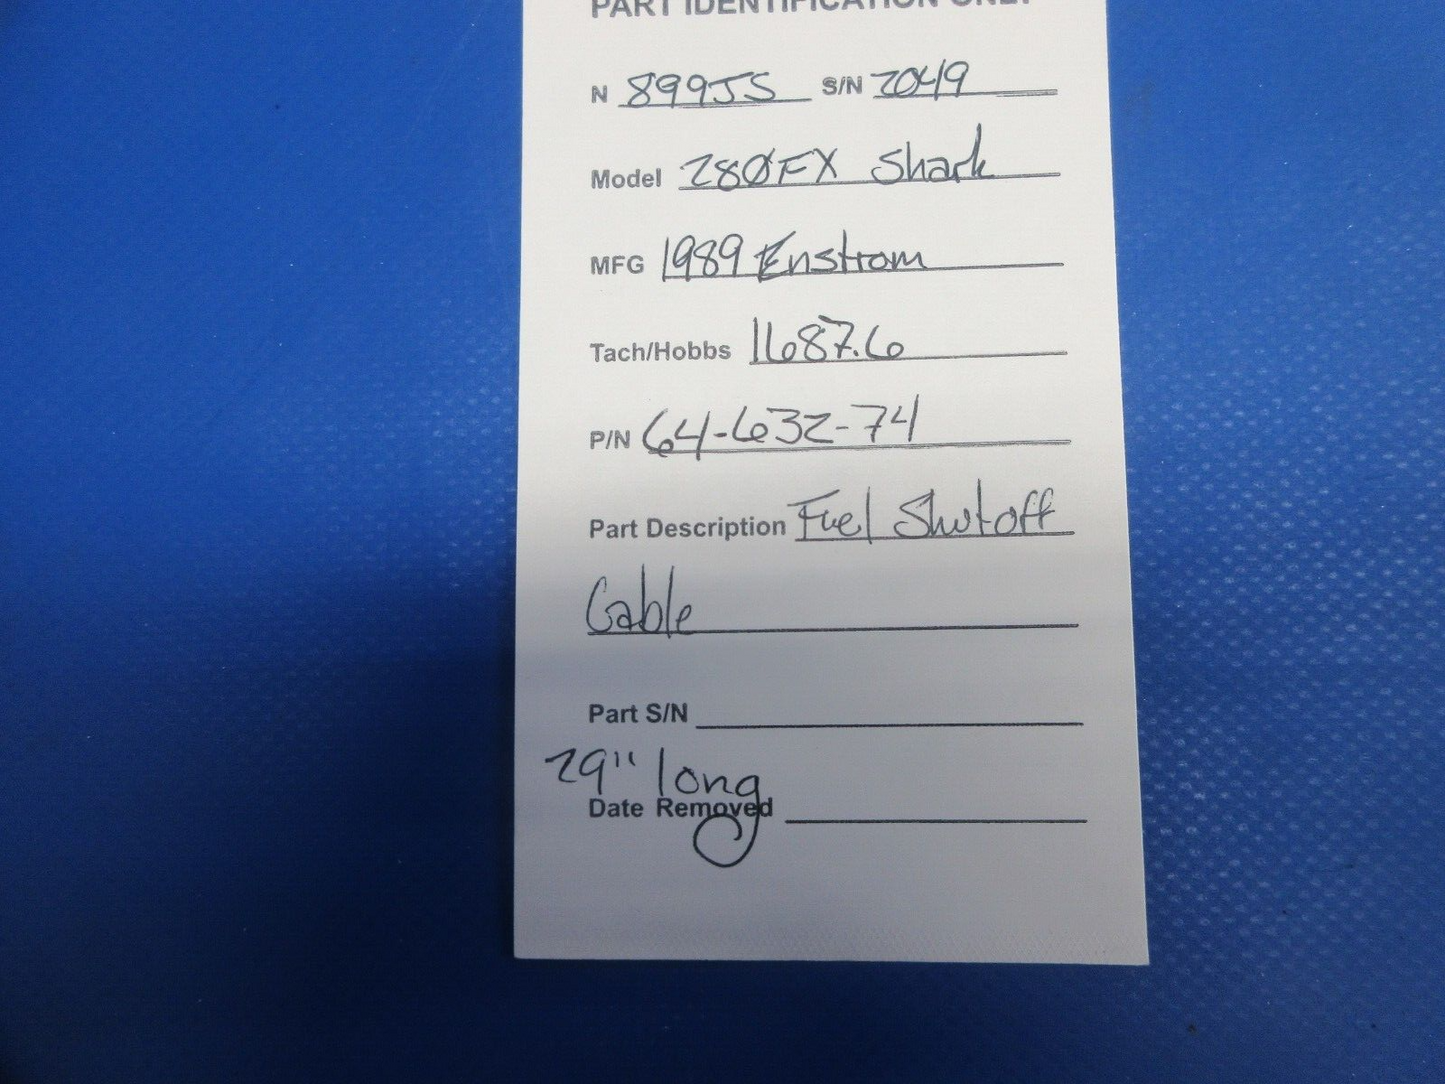 PART IDENTIFICATION ONLY
N 899JS S/N 2049
Model 280FX Shark
MFG 1989 Enstrom
Tach/Hobbs 1687.6
P/N 64-632-74
Part Description Fuel Shutoff
Cable
Part S/N
29" long
Date Removed